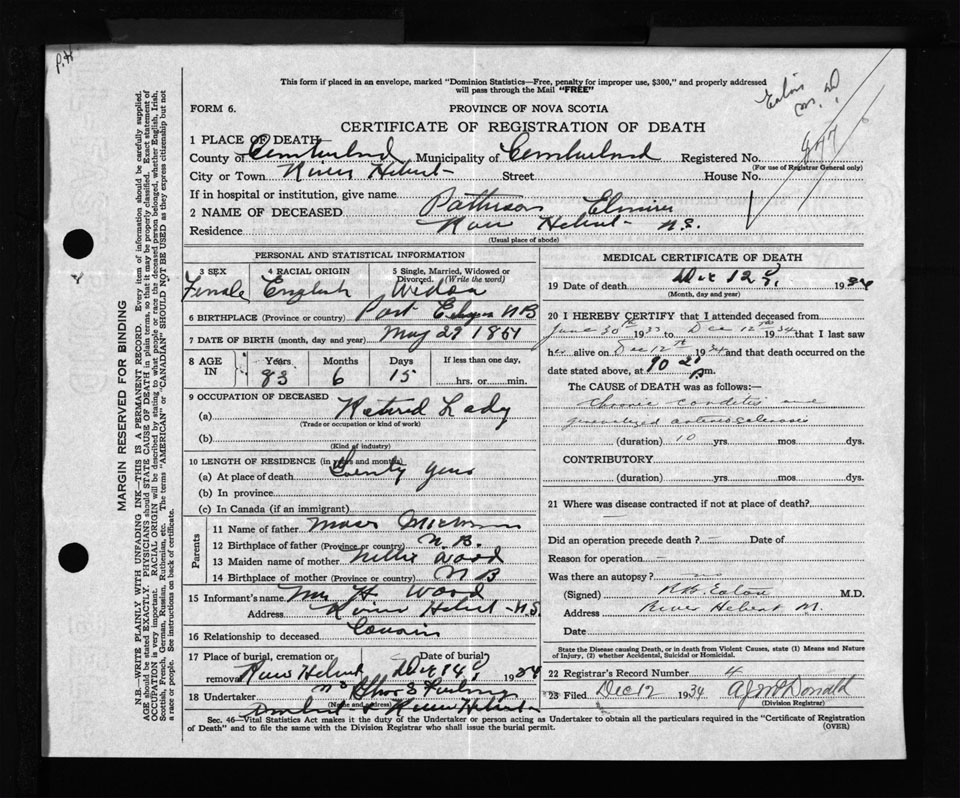 P.H
This form if placed in an envelope, marked "Dominion Statistics—Free, penalty for improper use, $300," and properly addressed
will pass through the Mail "FREE"
Eaton
M.D
FORM 6.
PROVINCE OF NOVA SCOTIA
CERTIFICATE OF REGISTRATION OF DEATH
1 PLACE OF DEATH
County of Cumberland Municipality of Cumberland Registered No.
(For use of Registrar General only)
City or Town River Hebert Street House No.
If in hospital or institution, give name
2 NAME OF DECEASED Patterson
Residence River Hebert N.S.
(Usual place of abode)
PERSONAL AND STATISTICAL INFORMATION
3 SEX 4 RACIAL ORIGIN 5 Single, Married, Widowed or Divorced. (Write the word)
Female English Widow
6 BIRTHPLACE (Province or country) Port Elgin N B
7 DATE OF BIRTH (month, day and year) May 29 1851
8 AGE IN Years Months Days If less than one day,
83 6 15 hrs. or min.
9 OCCUPATION OF DECEASED
(a) Retired Lady
(Trade or occupation or kind of work)
(b)
(Kind of industry)
10 LENGTH OF RESIDENCE (in years and months)
(a) At place of death Twenty years
(b) In province
(c) In Canada (if an immigrant)
Parents
11 Name of father Moses
12 Birthplace of father (Province or country) N. B.
13 Maiden name of mother Nellie Wood
14 Birthplace of mother (Province or country) N B
15 Informant's name Mrs H. Wood
Address River Hebert N.S.
16 Relationship to deceased Cousin
17 Place of burial, cremation or removal Date of burial
River Hebert Dec 14 1934
N S
18 Undertaker
(Name and address)
Amherst & River Hebert
MEDICAL CERTIFICATE OF DEATH
19 Date of death Dec 12 1934
(Month, day and year)
20 I HEREBY CERTIFY that I attended deceased from
June 30th 1933 to Dec 12th 1934 that I last saw
her alive on Dec 12th 1934 and that death occurred on the
date stated above, at 10 p m.
The CAUSE of DEATH was as follows:—
Chronic carditis and
generalized arteriosclerosis
(duration) 10 yrs. mos. dys.
CONTRIBUTORY
(duration) yrs. mos. dys.
21 Where was disease contracted if not at place of death?
Did an operation precede death? — Date of
Reason for operation —
Was there an autopsy?
(Signed) Eaton M.D.
Address River Hebert
Date
State the Disease causing Death, or in death from Violent Causes, state (1) Means and Nature
of Injury, (2) whether Accidental, Suicidal or Homicidal.
22 Registrar's Record Number 4
23 Filed Dec 12 1934 A.J. McDonald
(Division Registrar)
Sec. 46—Vital Statistics Act makes it the duty of the Undertaker or person acting as Undertaker to obtain all the particulars required in the "Certificate of Registration
of Death" and to file the same with the Division Registrar who shall issue the burial permit.
(OVER)
MARGIN RESERVED FOR BINDING
N.B.—WRITE PLAINLY WITH UNFADING INK—THIS IS A PERMANENT RECORD. Every item of information should be carefully supplied.
AGE should be stated EXACTLY. PHYSICIANS should STATE CAUSE OF DEATH in plain terms, so that it may be properly classified. Exact statement of
OCCUPATION is very important. RACIAL ORIGIN will be described by stating to what people or race the deceased person belonged, whether English, Irish,
Scottish, French, German, Russian, Ruthenian, etc. The terms "AMERICAN" or "CANADIAN" SHOULD NOT BE USED as they express citizenship but not
a race or people. See instructions on back of certificate.